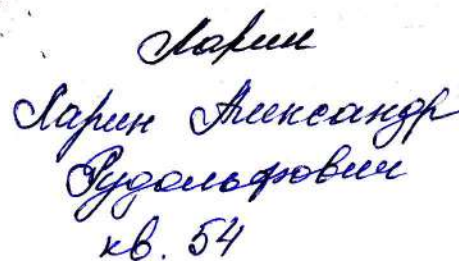 Ларин
Ларин Александр
Рудольфович
кв. 54